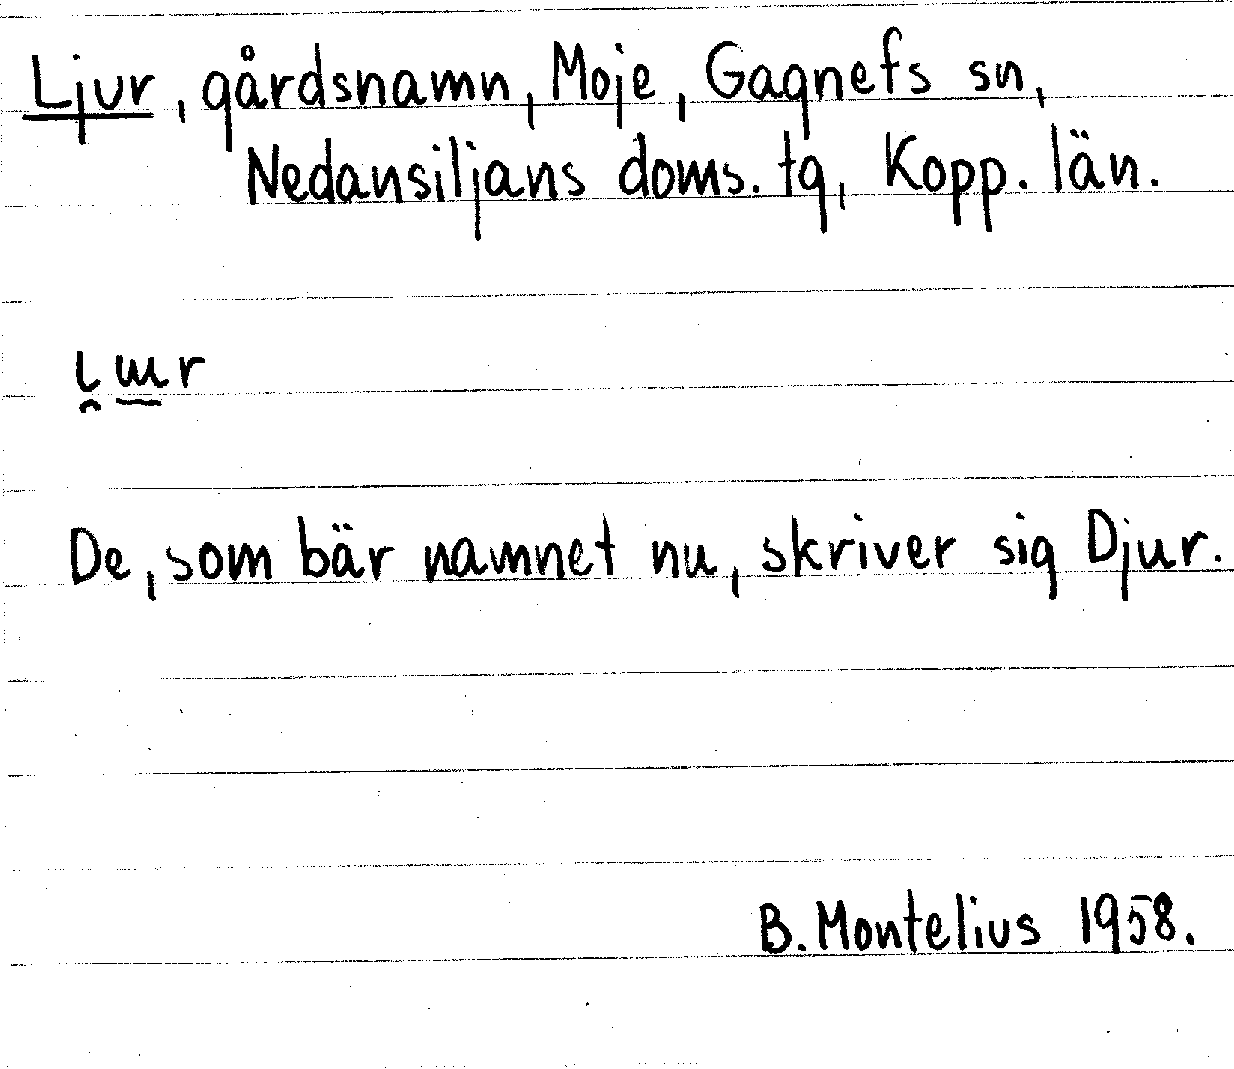 Ljur, gårdsnamn, Moje, Gagnefs sn,
Nedansiljans doms. tg, Kopp. län.
ɩ̯ ɯ̲ r
De, som bär namnet nu, skriver sig Djur.
B. Montelius 1958.